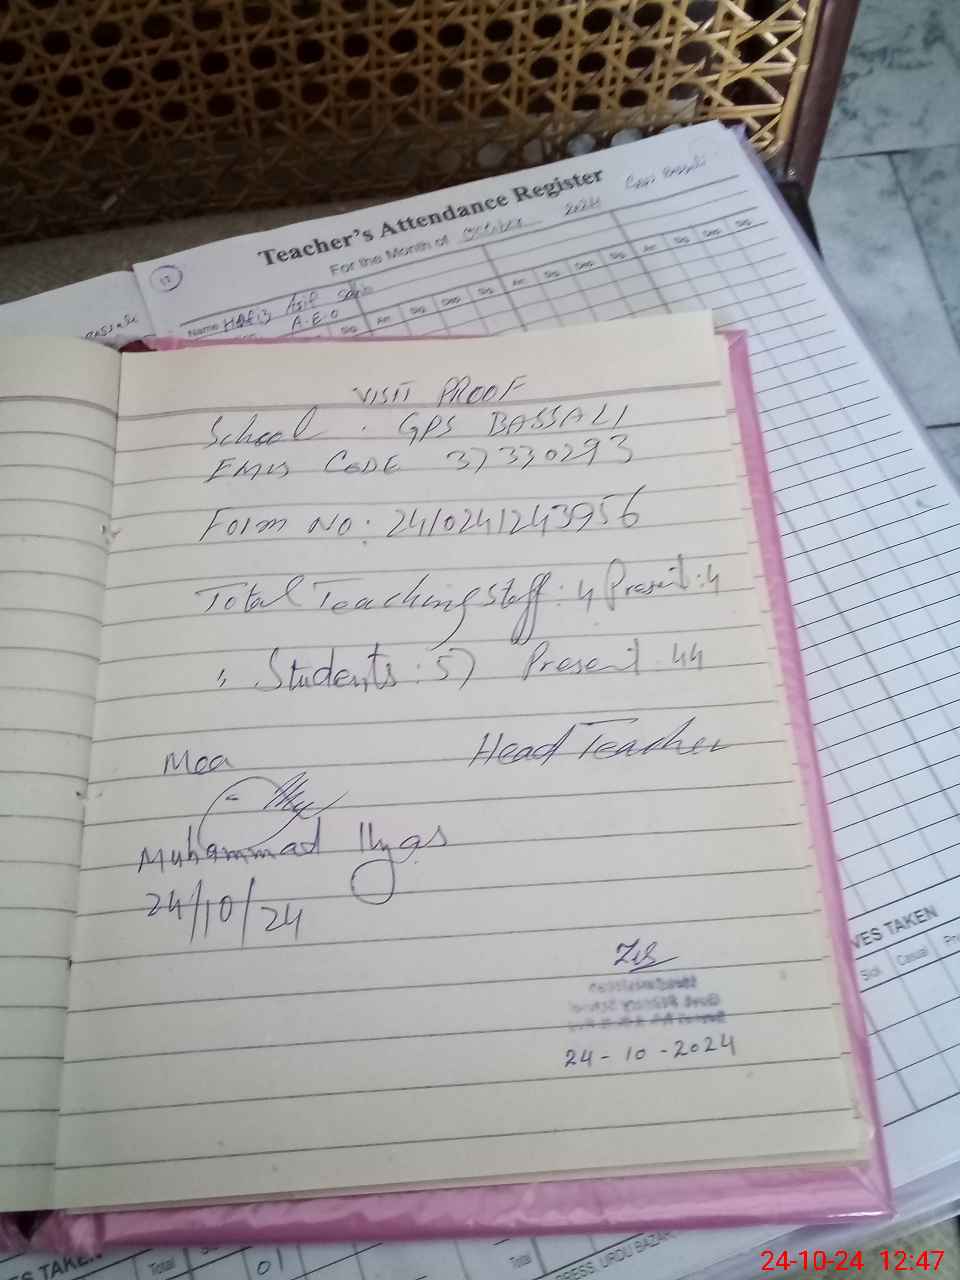 Teacher's Attendance Register
For the Month of October 2024
12
Name Hafiz Asif Sahib
A.E.O
Sig. Arr. Sig. Dep. Sig. Arr. Sig. Dep. Sig. Arr. Sig. Dep. Sig.
VISIT PROOF
School . GPS BASSALI
EMIS CODE 37330293
Form NO: 2410241243956
Total Teaching Staff: 4 Present: 4
" Students: 57 Present 44
Mea
Head Teacher
Muhammad Ilyas
24/10/24
24-10-2024
VES TAKEN
Sick Casual
TAKEN
Total
01
Total
PRESS, URDU BAZAR
24-10-24 12:47